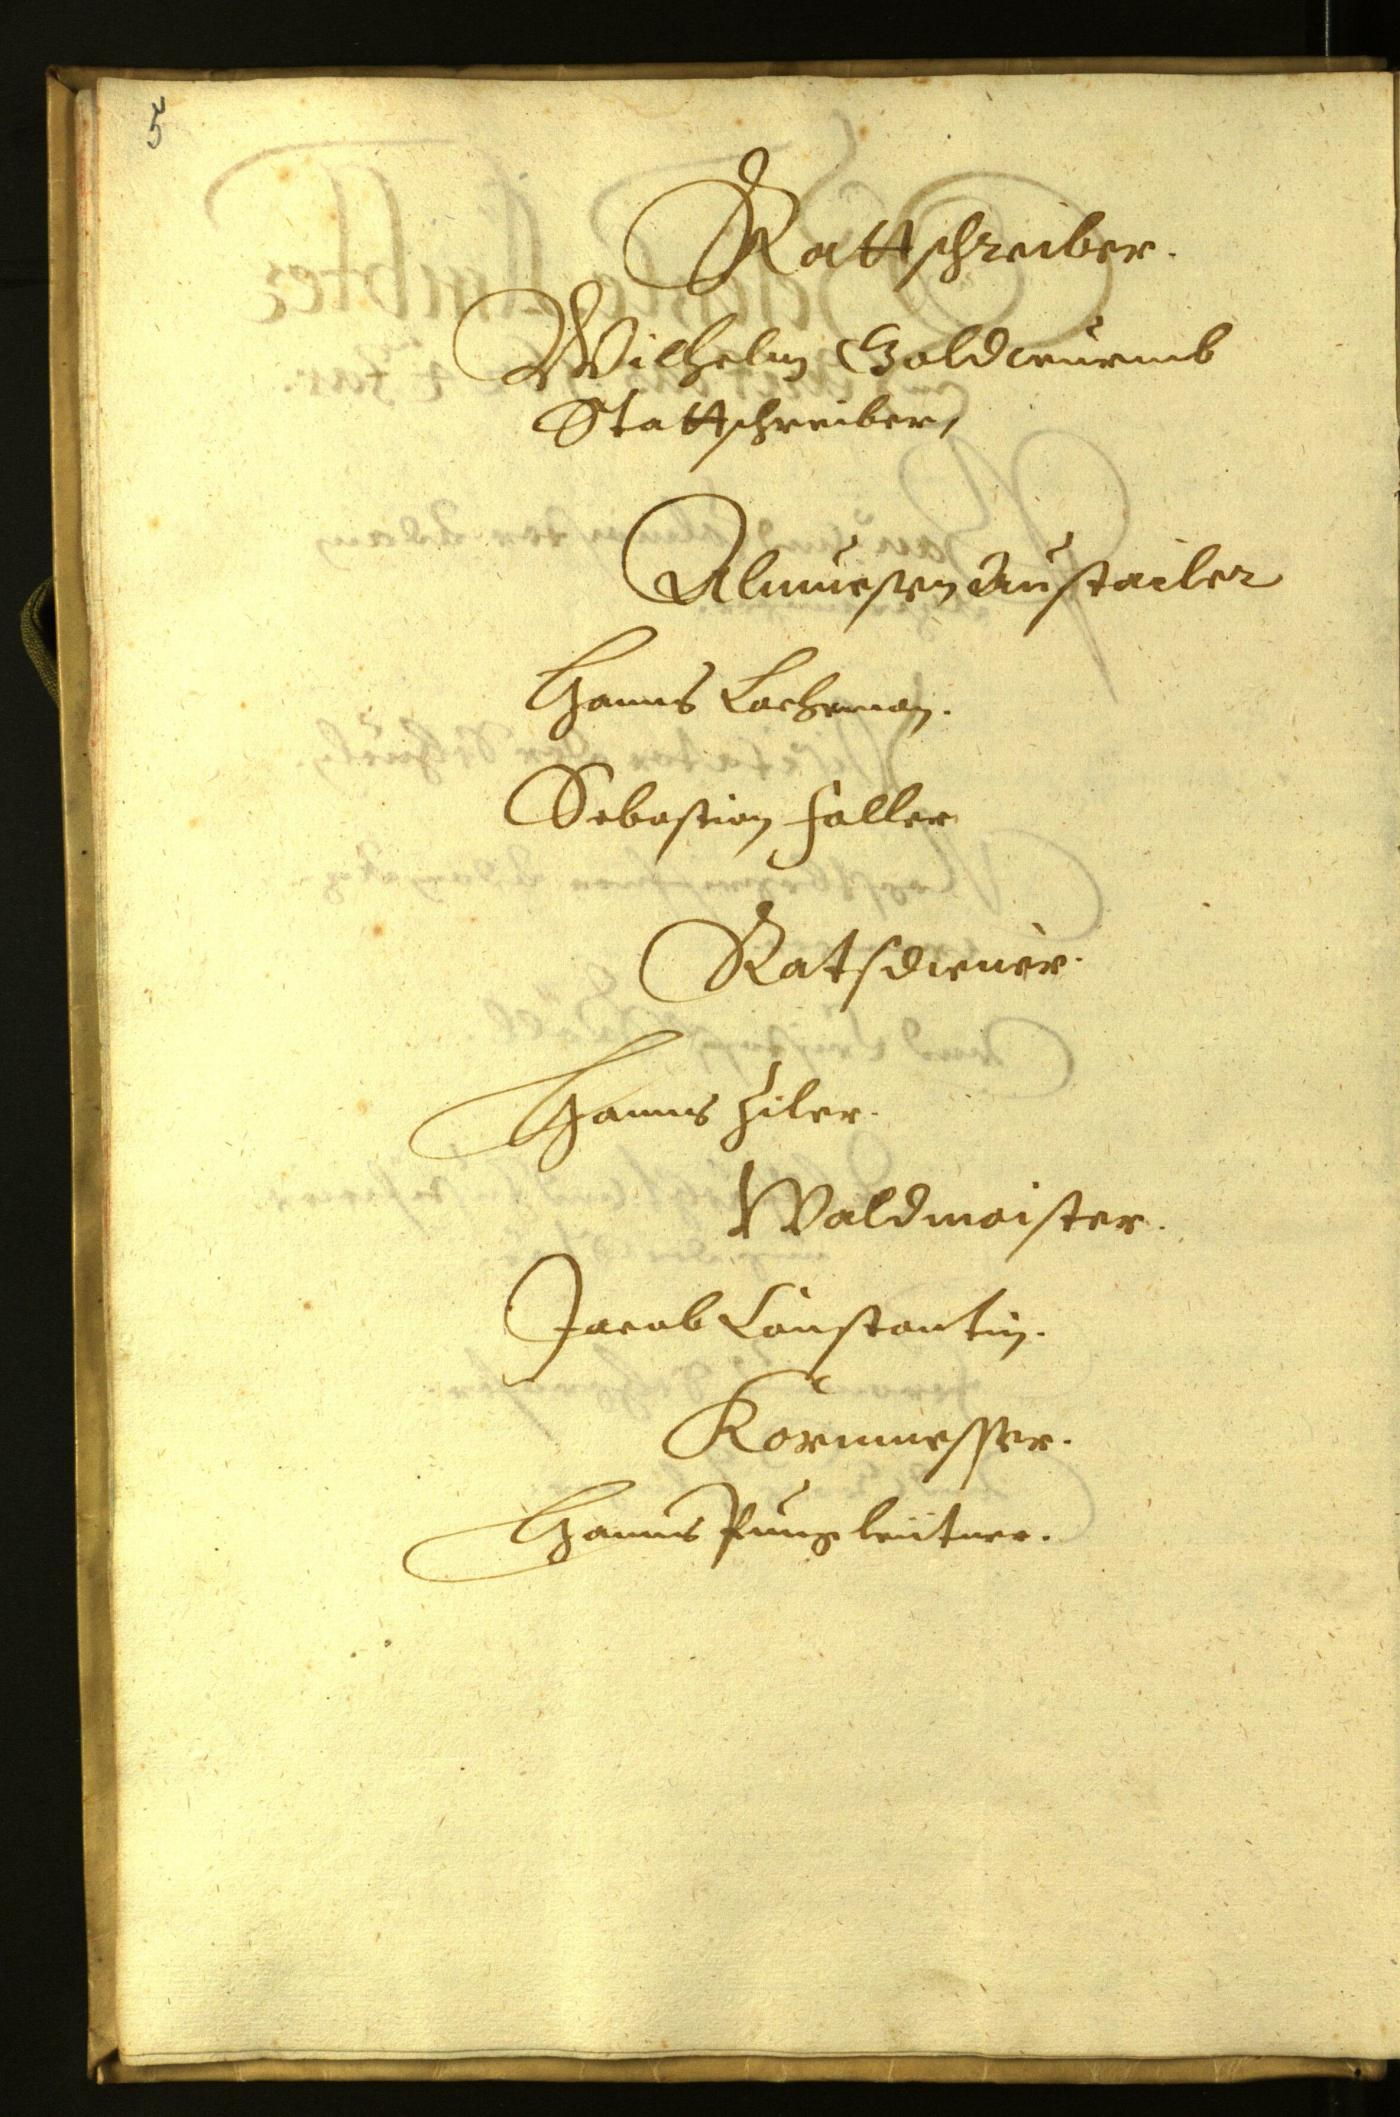 5
Rattschreiber.
Wilhelm Goldwurmb
Stattschreiber,
Almuesen Austailer
Hanns Lacheman.
Sebastian Faller
Ratsdiener.
Hanns Hiler.
Waldmaister.
Jacob Constantin.
Kornmesser.
Hanns